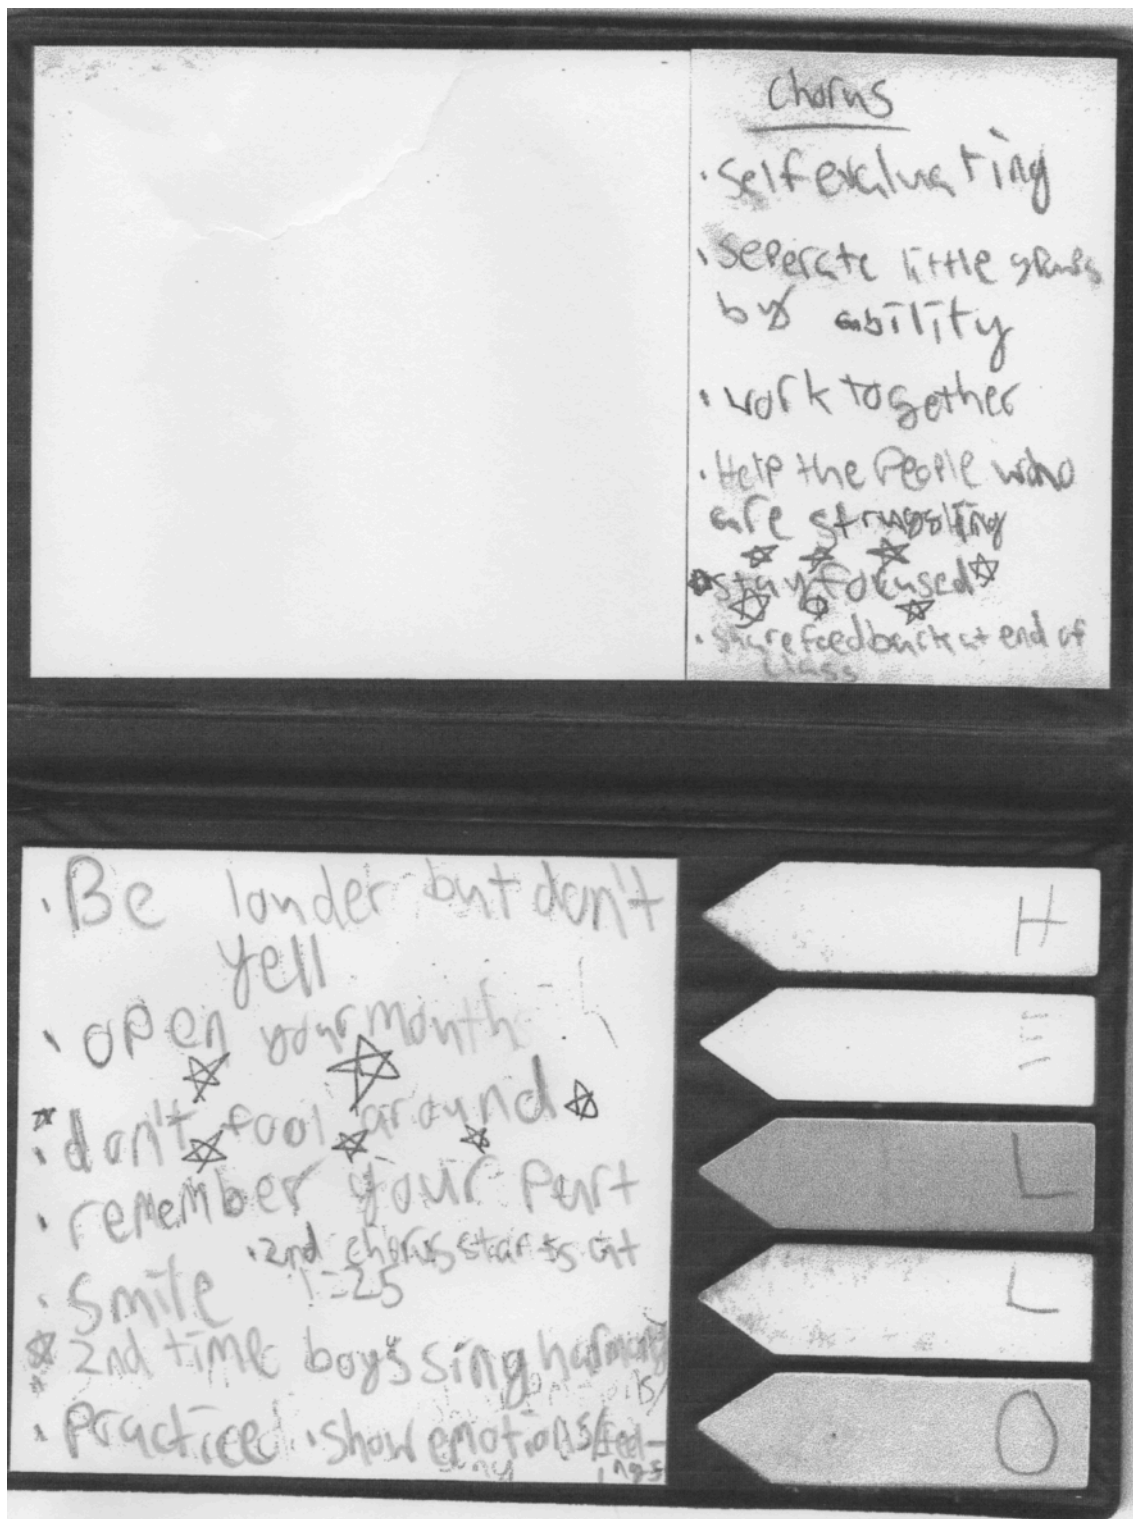 Chorus
• Self evaluating
• Seperate little groups
by ability
• work together
• Help the People who
are struggling
stay focused
• share feedback at end of
class
• Be louder but don't
yell
• open your mouth
• don't fool around
• remember your part
• 2nd chorus starts at
1=25
• Smile
2nd time boys sing harmony
• Practice • show emotions/feel-
ings
H
E
L
L
O